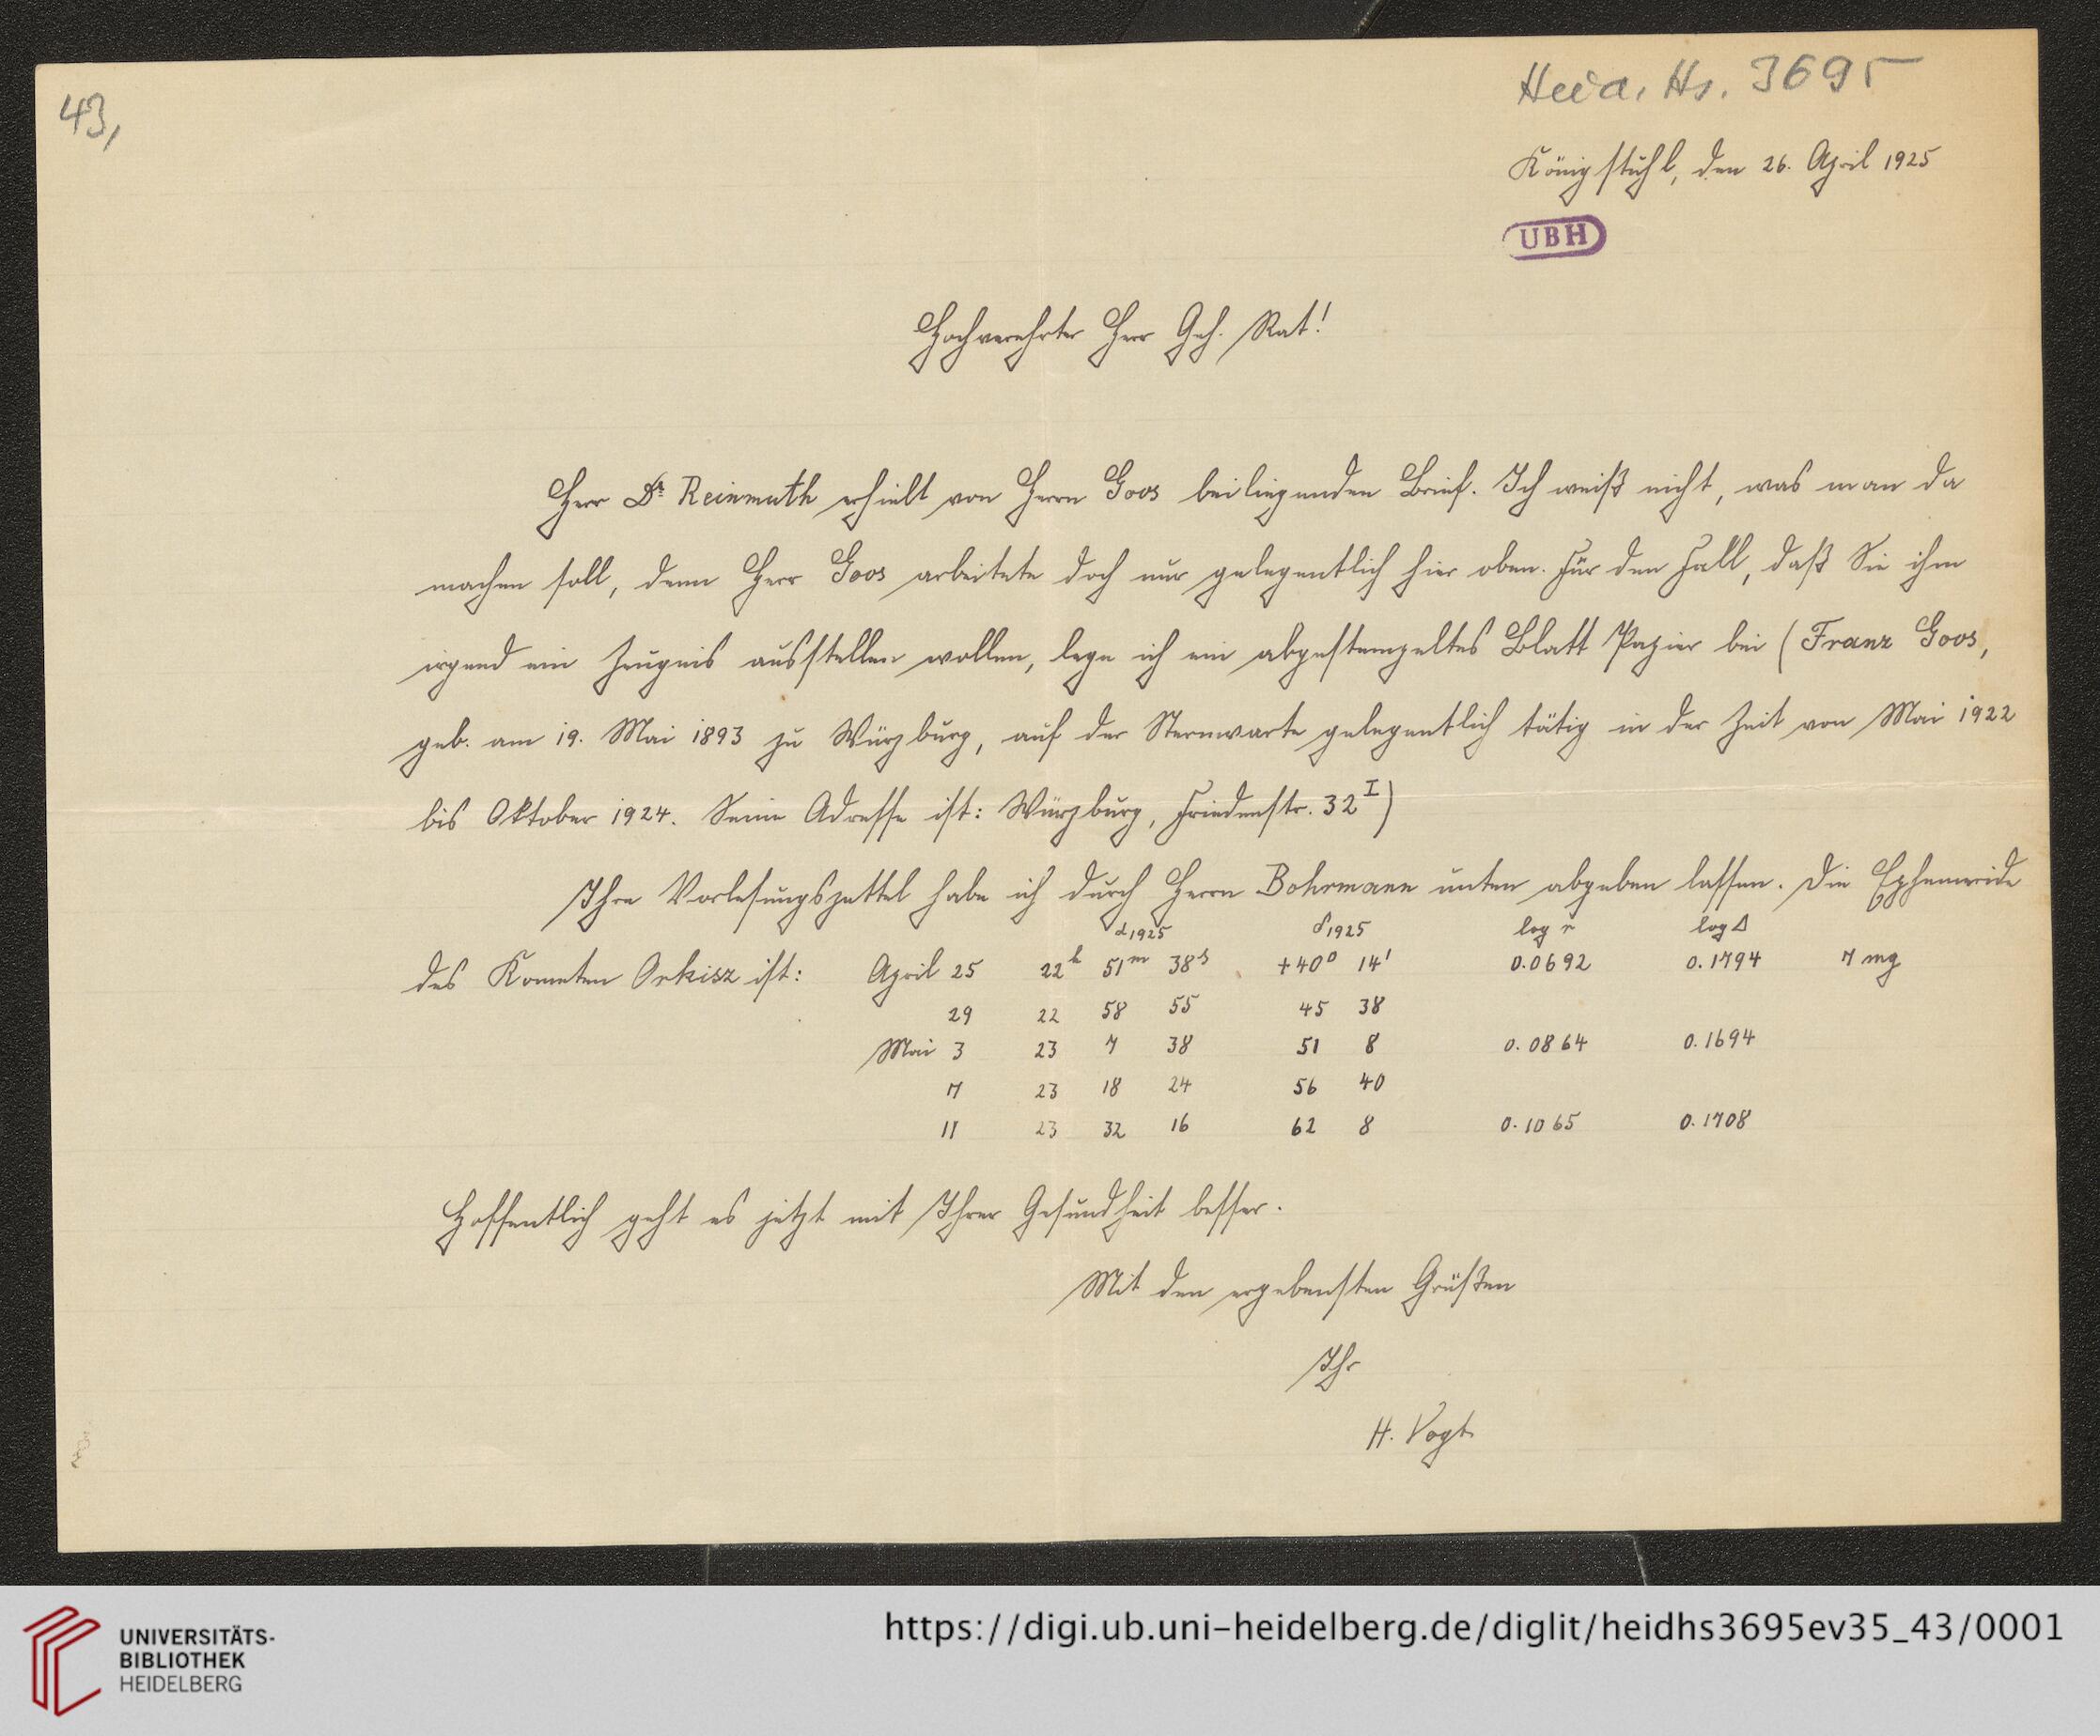 43,
Heid. Hs. 3695
Königstuhl, den 26. April 1925
UBH
Hochverehrter Herr Geh. Rat!
Herr Dr Reinmuth erhielt von Herrn Goos beiliegenden Brief. Ich weiß nicht, was man da
machen soll, denn Herr Goos arbeitete doch nur gelegentlich hier oben. Für den Fall, daß Sie ihm
irgend ein Zeugnis ausstellen wollen, lege ich ein abgestempeltes Blatt Papier bei (Franz Goos,
geb. am 19. Mai 1893 zu Würzburg, auf der Sternwarte gelegentlich tätig in der Zeit von Mai 1922
bis Oktober 1924. Seine Adresse ist: Würzburg, Friedenstr. 32 I)
Ihre Vorlesungszettel habe ich durch Herrn Bohrmann unten abgeben lassen. Die Ephemeride
α1925 δ1925 log r log Δ
des Kometen Orkisz ist: April 25 22h 51m 38s +40° 14' 0.0692 0.1794 7 mg
29 22 58 55 45 38
Mai 3 23 7 38 51 8 0.0864 0.1694
7 23 18 24 56 40
11 23 32 16 62 8 0.1065 0.1708
Hoffentlich geht es jetzt mit Ihrer Gesundheit besser.
Mit den ergebensten Grüßen
Ihr
H. Vogt
UNIVERSITÄTS-
BIBLIOTHEK
HEIDELBERG
https://digi.ub.uni-heidelberg.de/diglit/heidhs3695ev35_43/0001